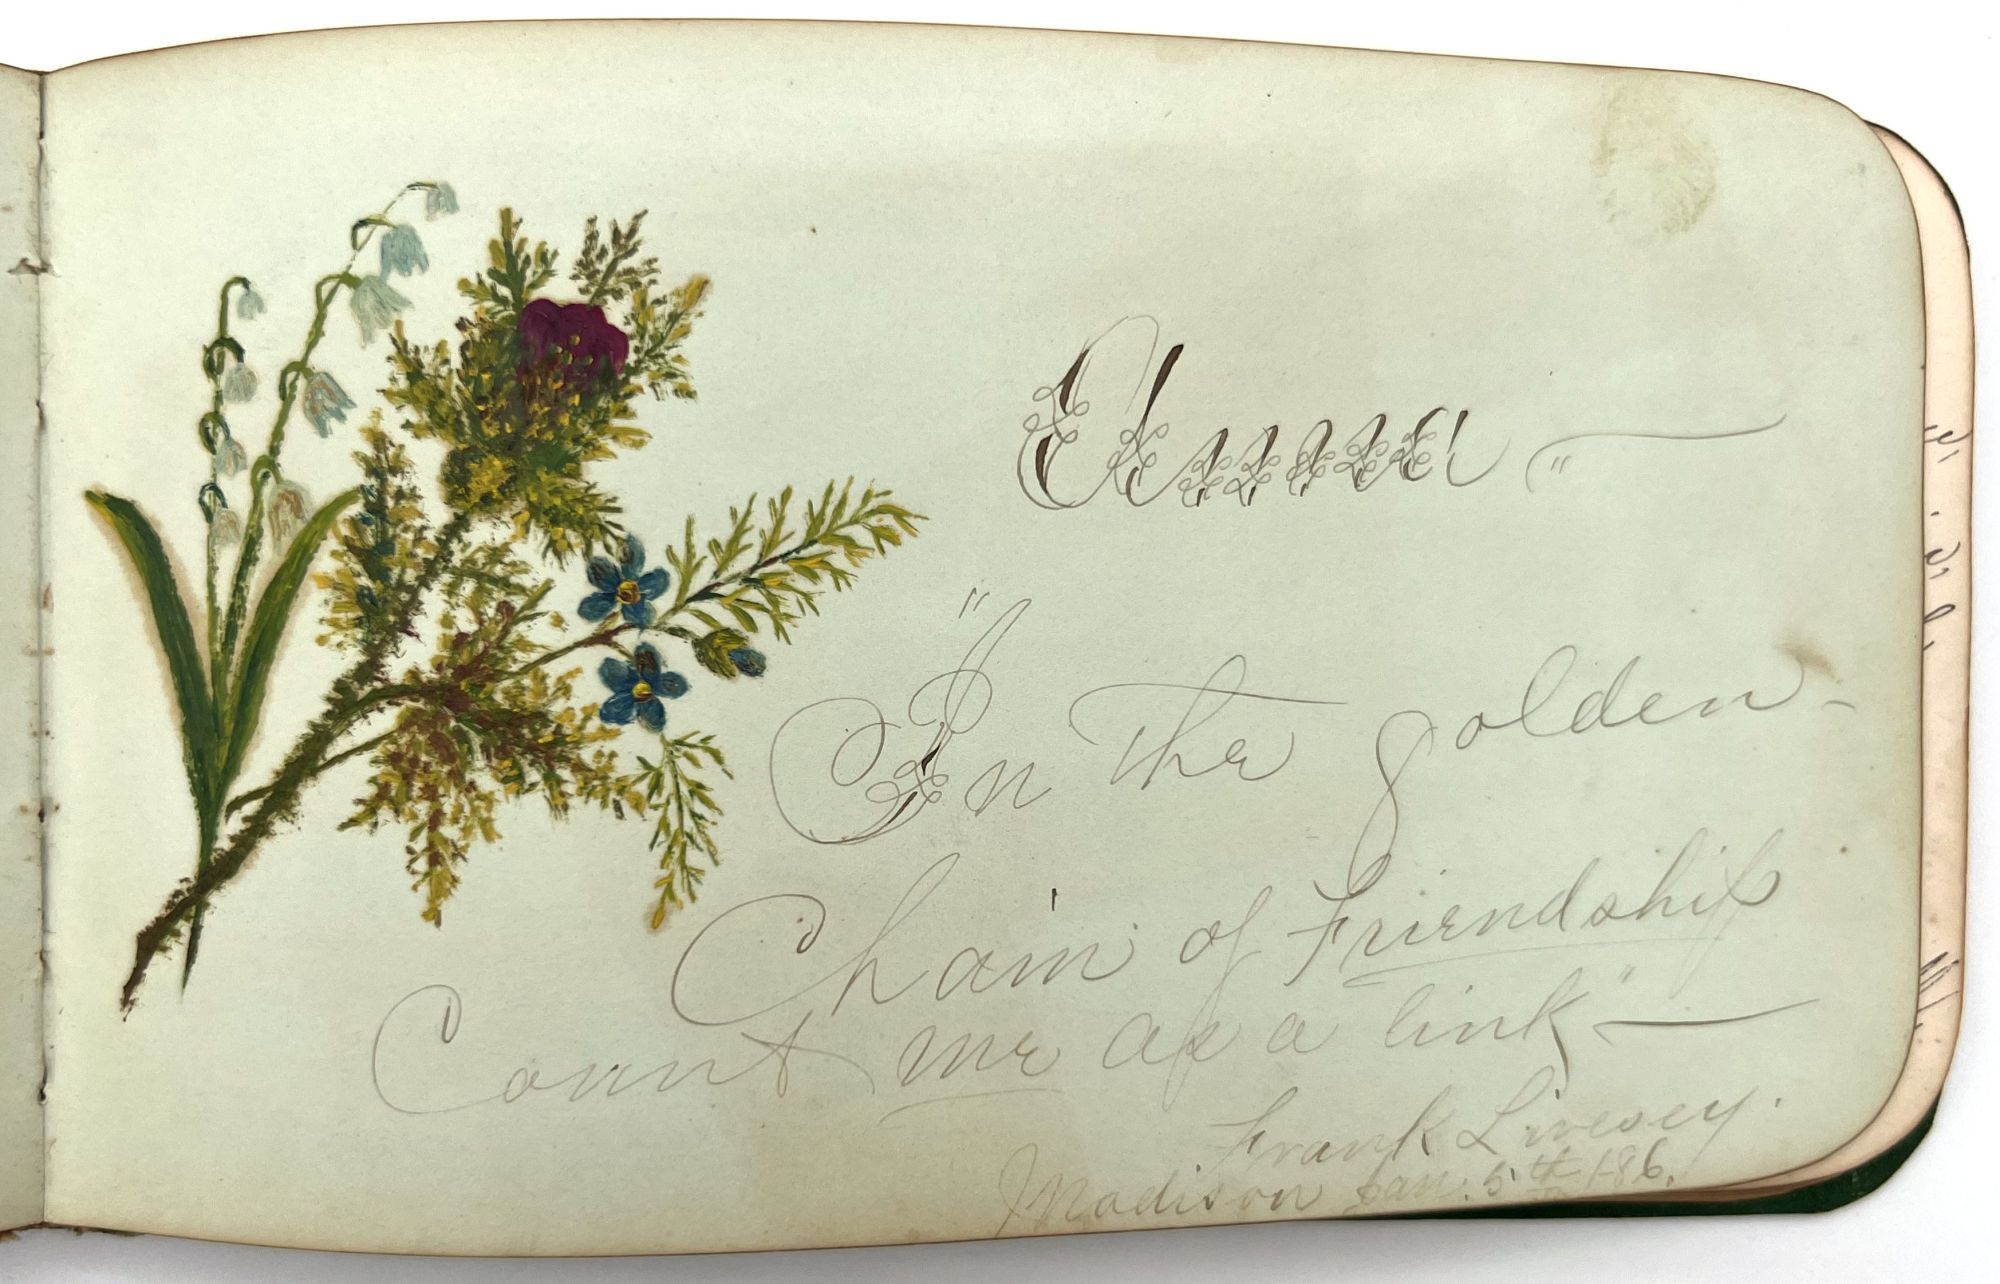 Elma "
"In the golden
Chain of Friendship
Count me as a link" —
Frank Livesey.
Madison Jan. 5th 186.